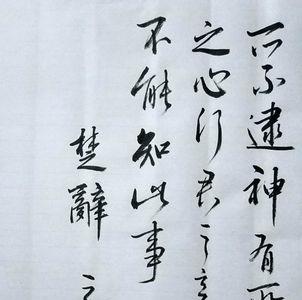 所不逮神有所
之心行君之意
不能知此事
楚辭